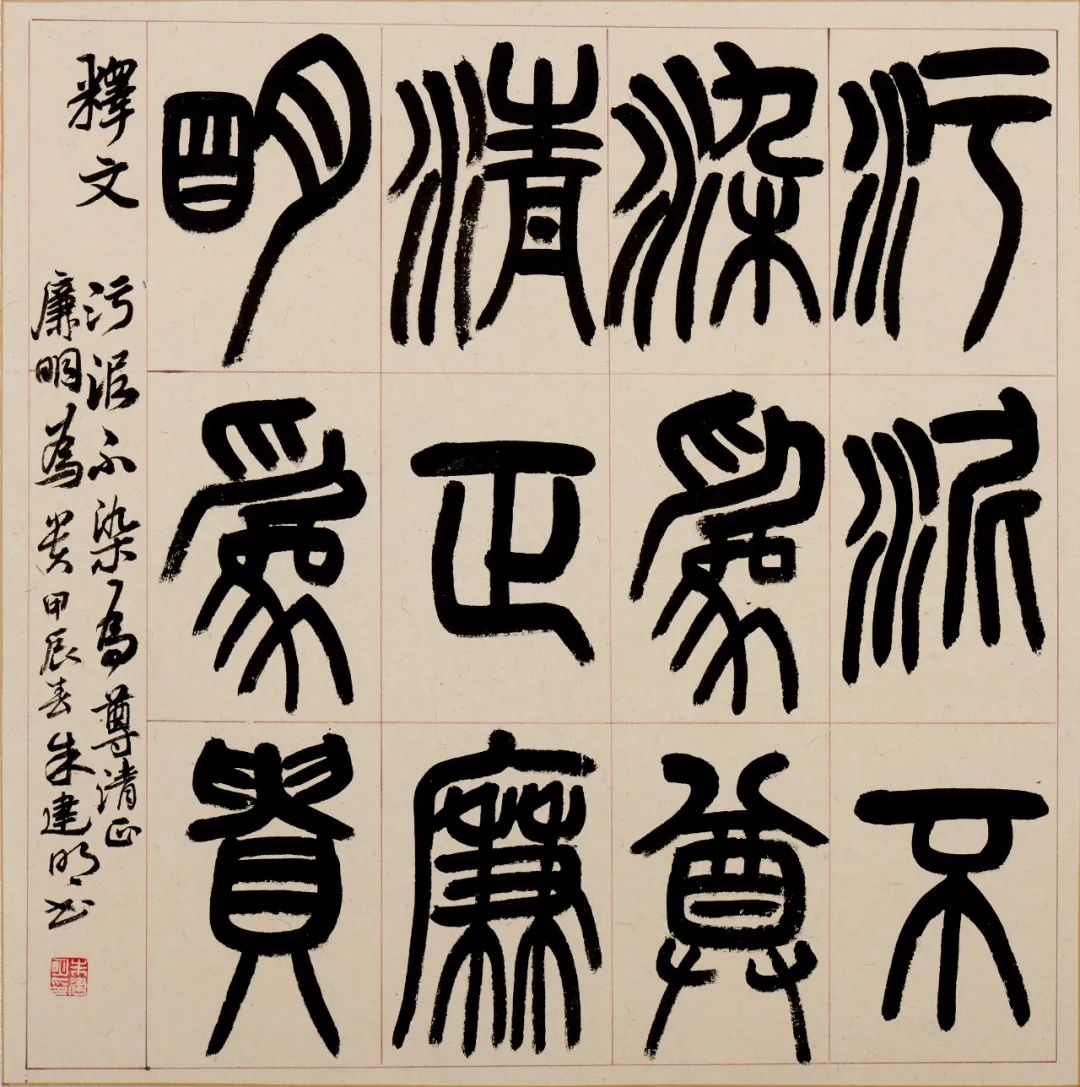 污泥不
染為尊
清正廉
明為貴
釋文
污泥不染為尊清正
廉明為貴甲辰春朱建明书
朱建明印